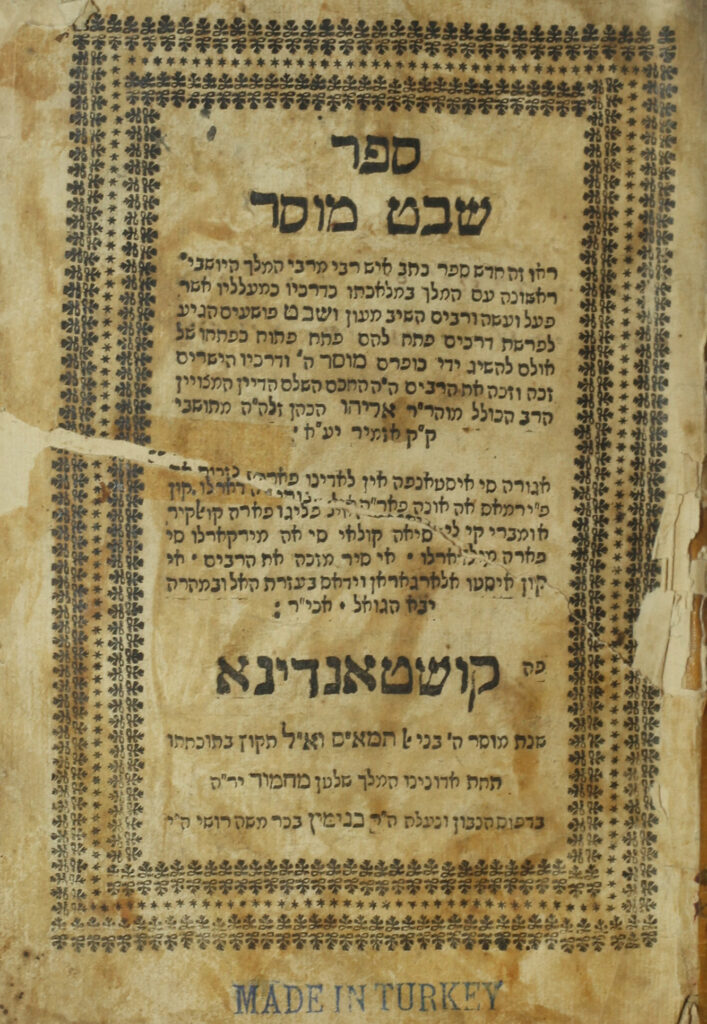 ספר
שבט מוסר
ראו זה חדש ספר כתב איש רבי מרבי המלך היושבי
ראשונה עם המלך במלאכתו כדרכיו כמעלליו אשר
פעל ועשה ורבים השיב מעון ושבט פושעים הגיע
לפרשת דרכים פתח להם פתח פתוח כפתחו של
אולם להשיג ידי כופרם מוסר ה' ודרכיו הישרים
זכה וזכה את הרבים ה"ה החכם השלם הדיין המצויין
הרב הכולל מוהר"ר אליהו הכהן זלה"ה מתושבי
ק"ק אזמיר יע"א :
אגורה סי איסטאנפה אין לאדינו
פירמאס אה אונה
אומברי קי סיאה קולאי סי אה מירקארלו סי
פארה • אי סיר מזכה את הרבים • אי
קון איסטו אלארגאראן וידאס בעזרת האל ובמהרה
יבא הגואל • אכי"ר :
פה קושטאנדינא
שנת מוסר ה' בני אל תמאס ואל תקוץ בתוכחתו
תחת אדונינו המלך שלטן מחמוד יר"ה
בדפוס הנבון ונעלה ה"ר בנימין בכר משה רוסי הי"ו
MADE IN TURKEY